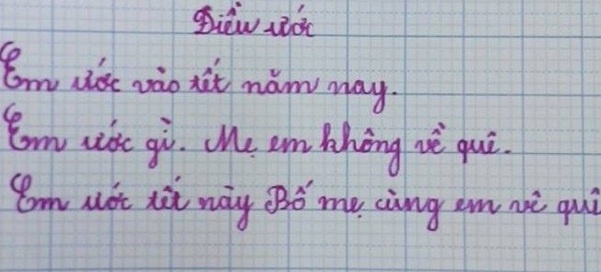 Điều ước
Em ước vào tết năm nay.
Em ước gì. Mẹ em không về quê.
Em ước tết này Bố mẹ cùng em về quê